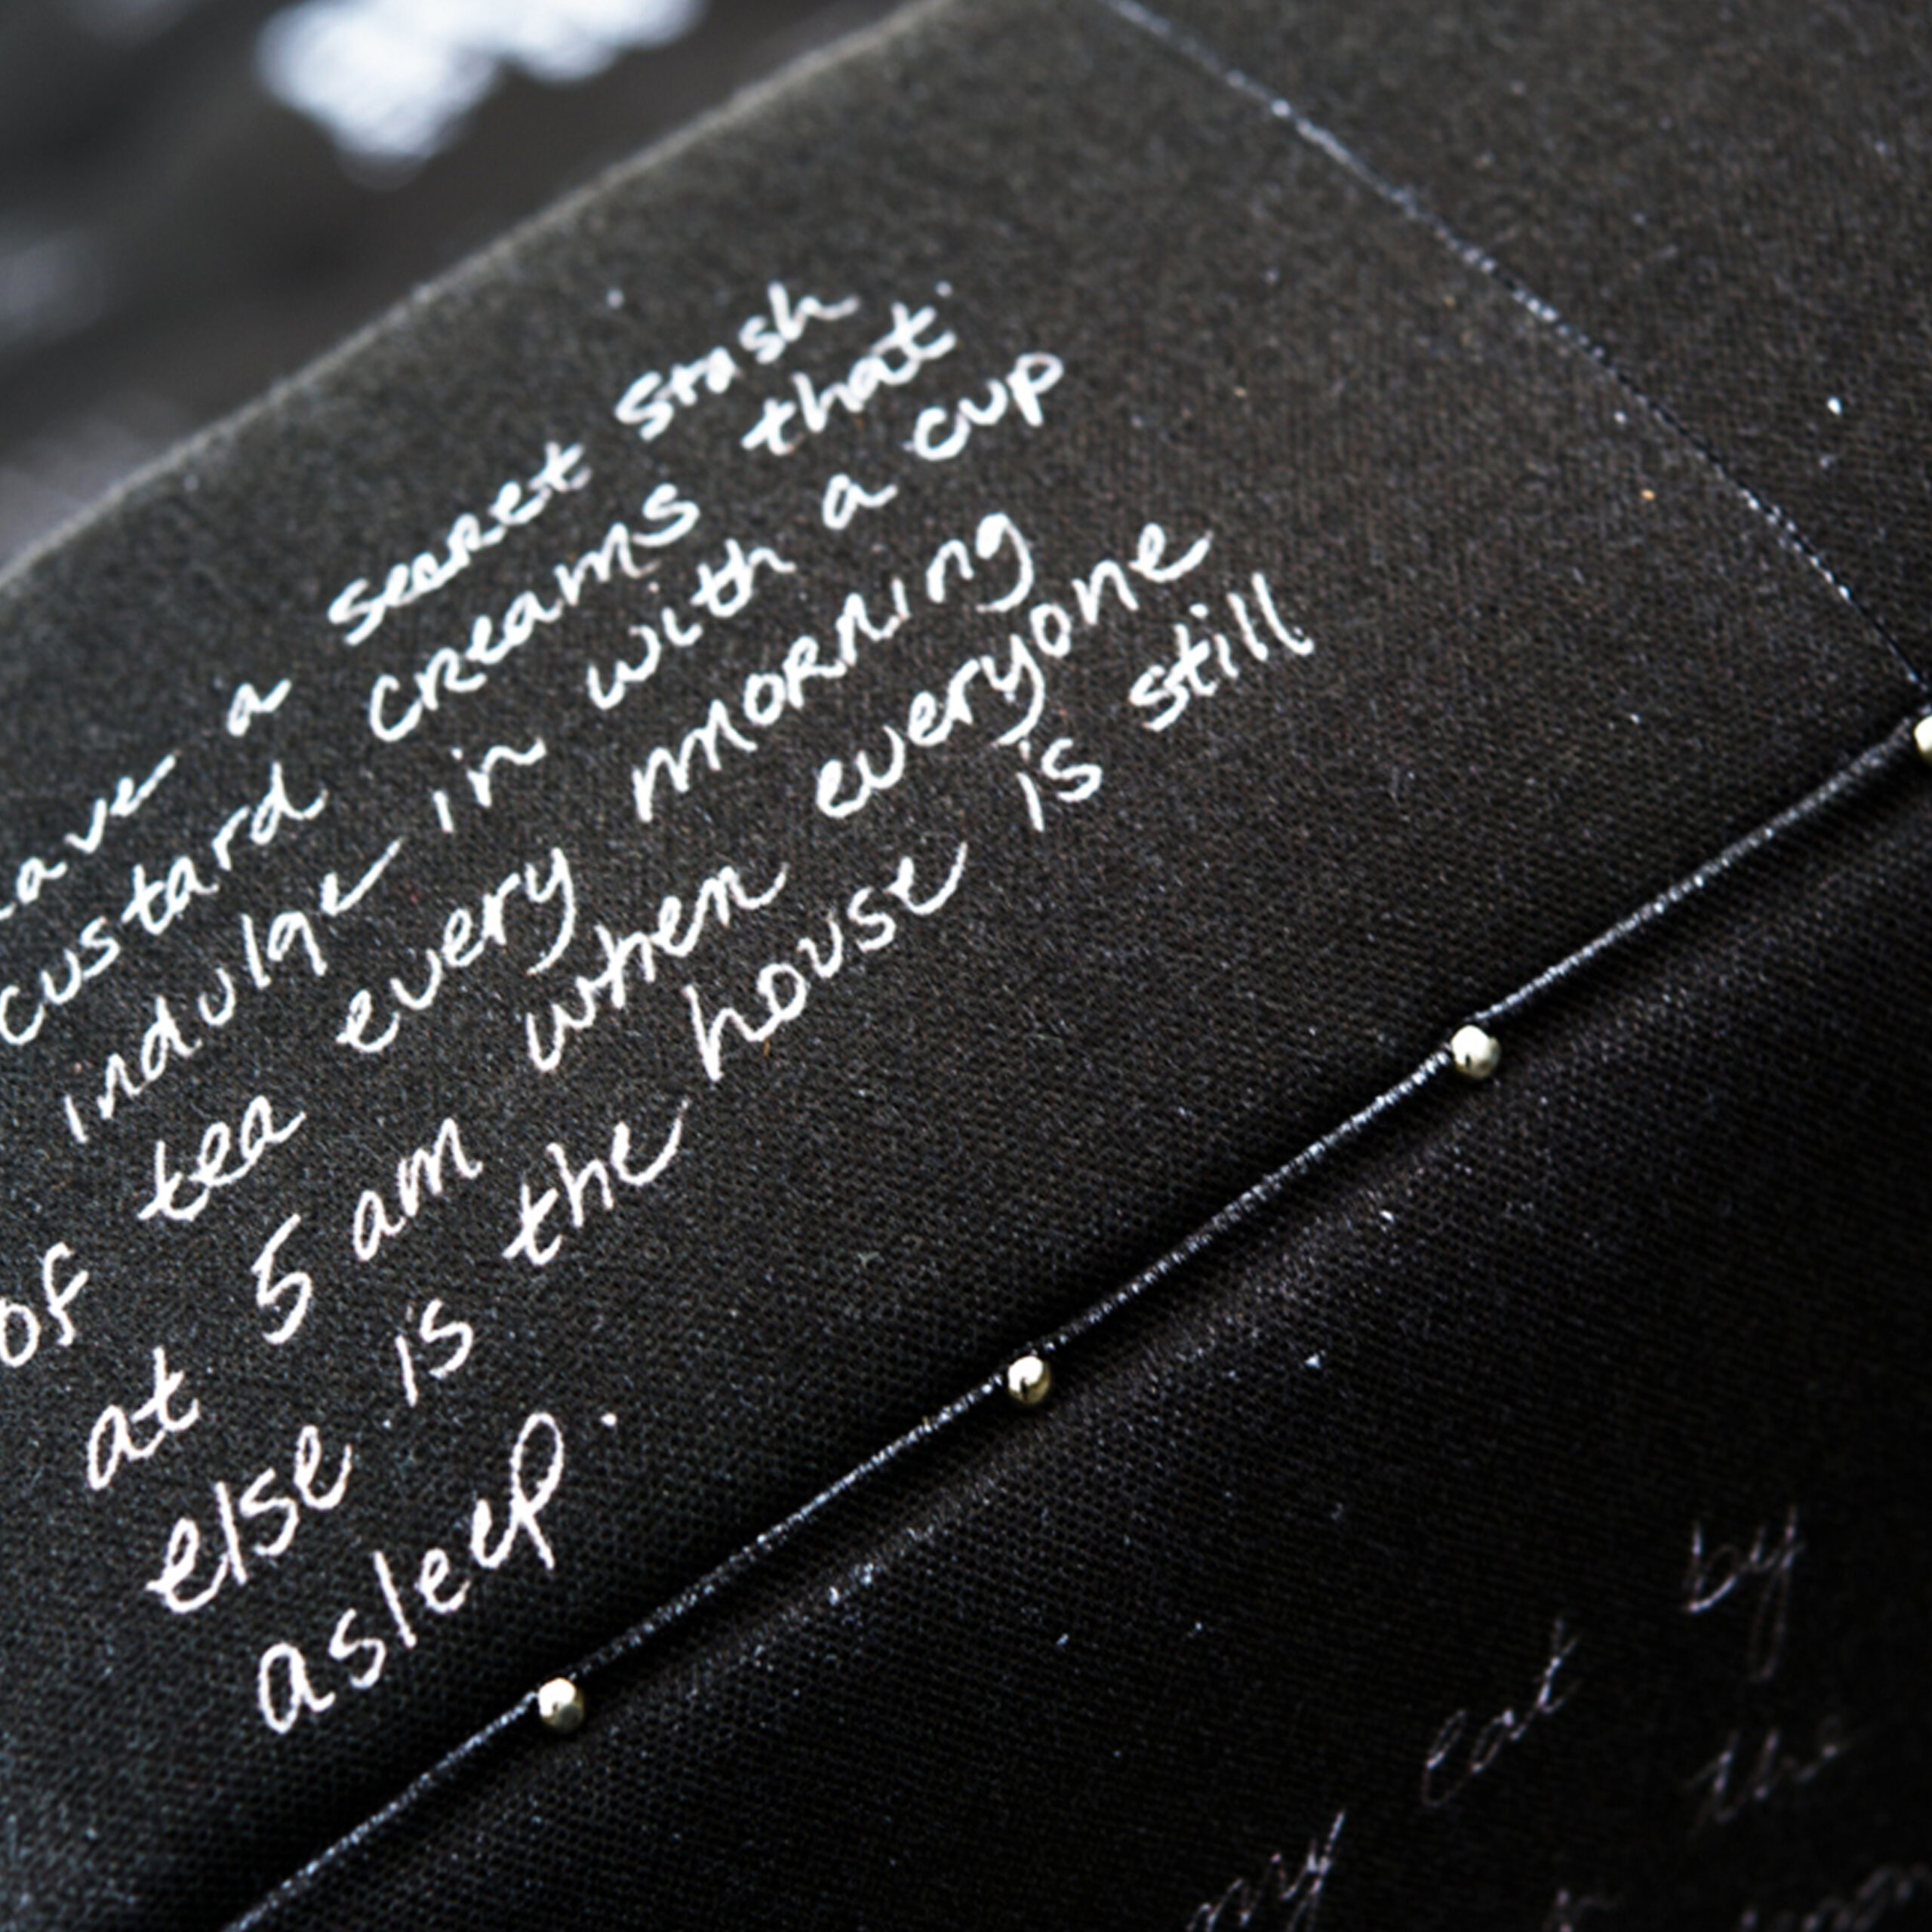 ave a secret stash
custard creams that
indulge in with a cup
of tea every morning
at 5 am when everyone
else is the house is still
asleep.
my cat by
the